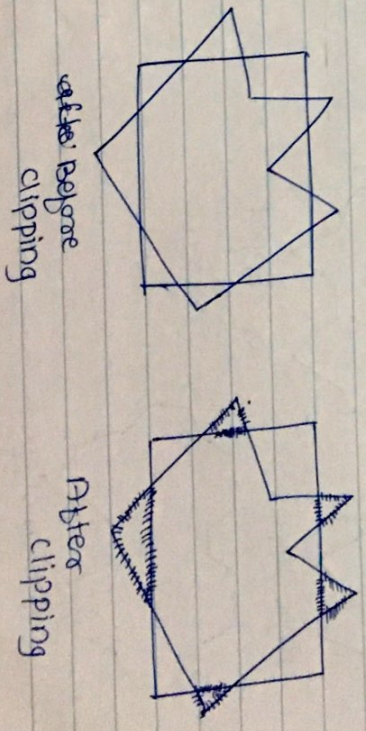 Before
clipping
After
clipping